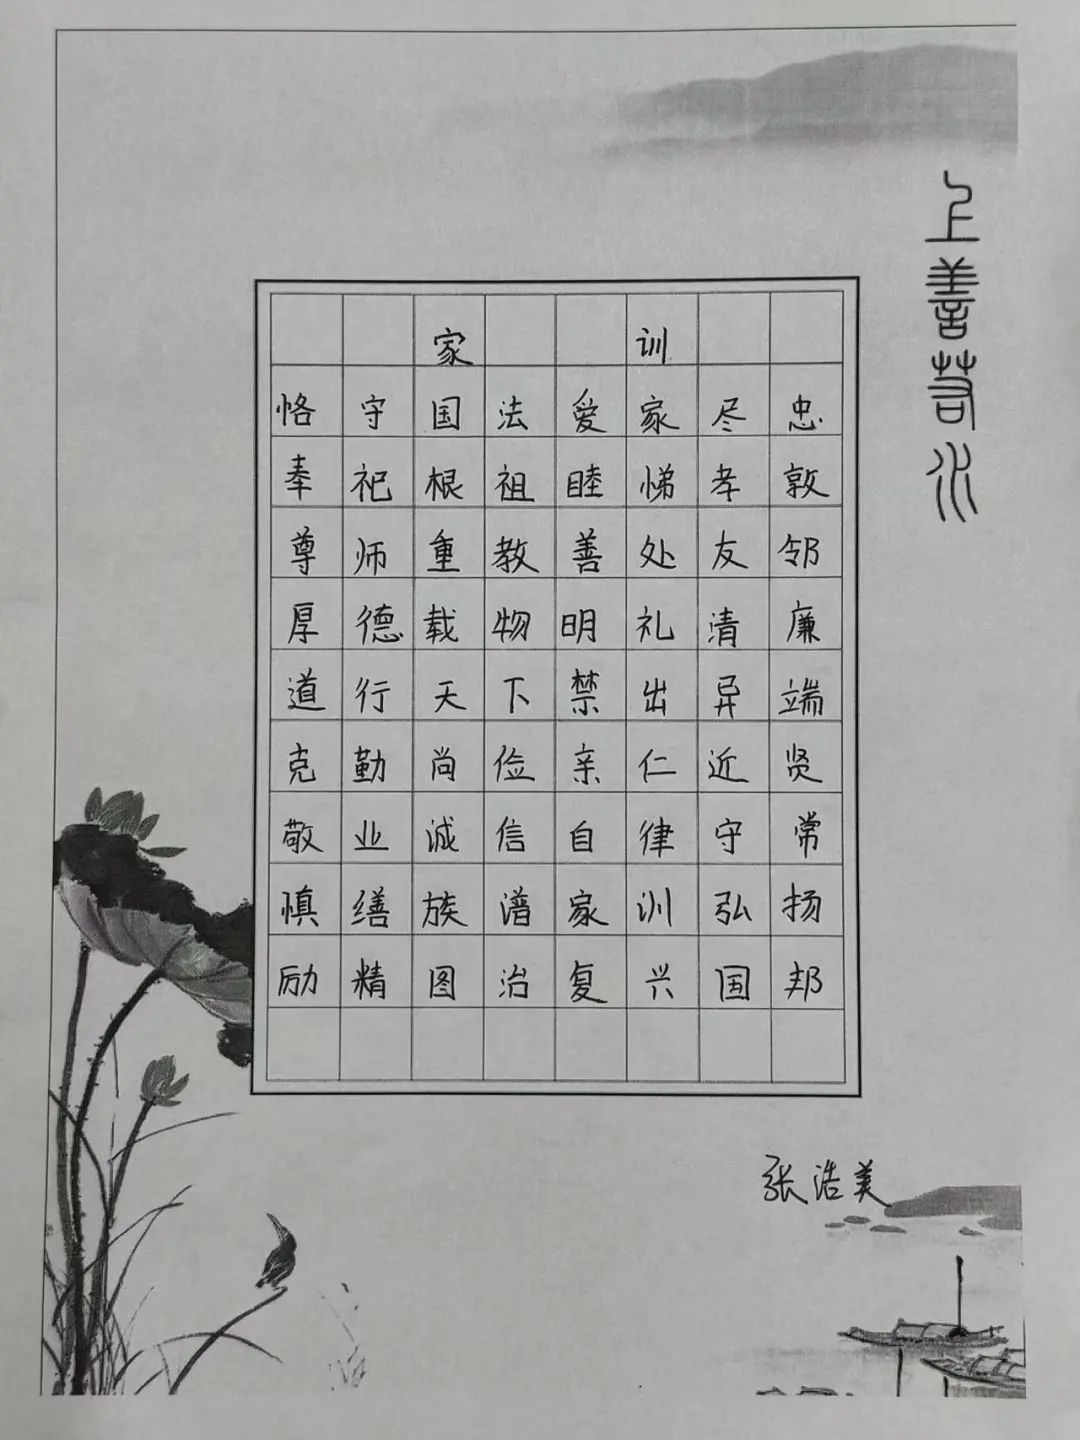 上善若水
家训
恪守国法爱家尽忠
奉祀根祖睦悌孝敦
尊师重教善处友邻
厚德载物明礼清廉
道行天下禁出异端
克勤尚俭亲仁近贤
敬业诚信自律守常
慎缮族谱家训弘扬
励精图治复兴国邦
张浩美